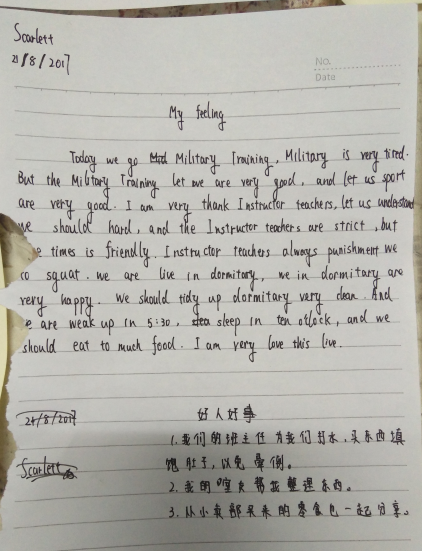 Scarlett
21/8/2017
NO.
Date
My feeling
Today we go Military Training, Military is very tired.
But the Military Training let we are very good, and let us sport
are very good. I am very thank Instructor teachers, let us understand
we should hard, and the Instructor teachers are strict, but
times is friendly. Instructor teachers always punishment we
to squat. we are live in dormitory, we in dormitary are
very happy. We should tidy up dormitary very clean. And
are weak up in 5:30, sleep in ten o'lock, and we
should eat to much food. I am very love this live.
21/8/2017
好人好事
1.我们的班主任为我们打水,买东西填
Scarlett
饱肚子,以免晕倒。
2.我的室友帮我整理东西。
3.从小卖部买来的零食也一起分享。